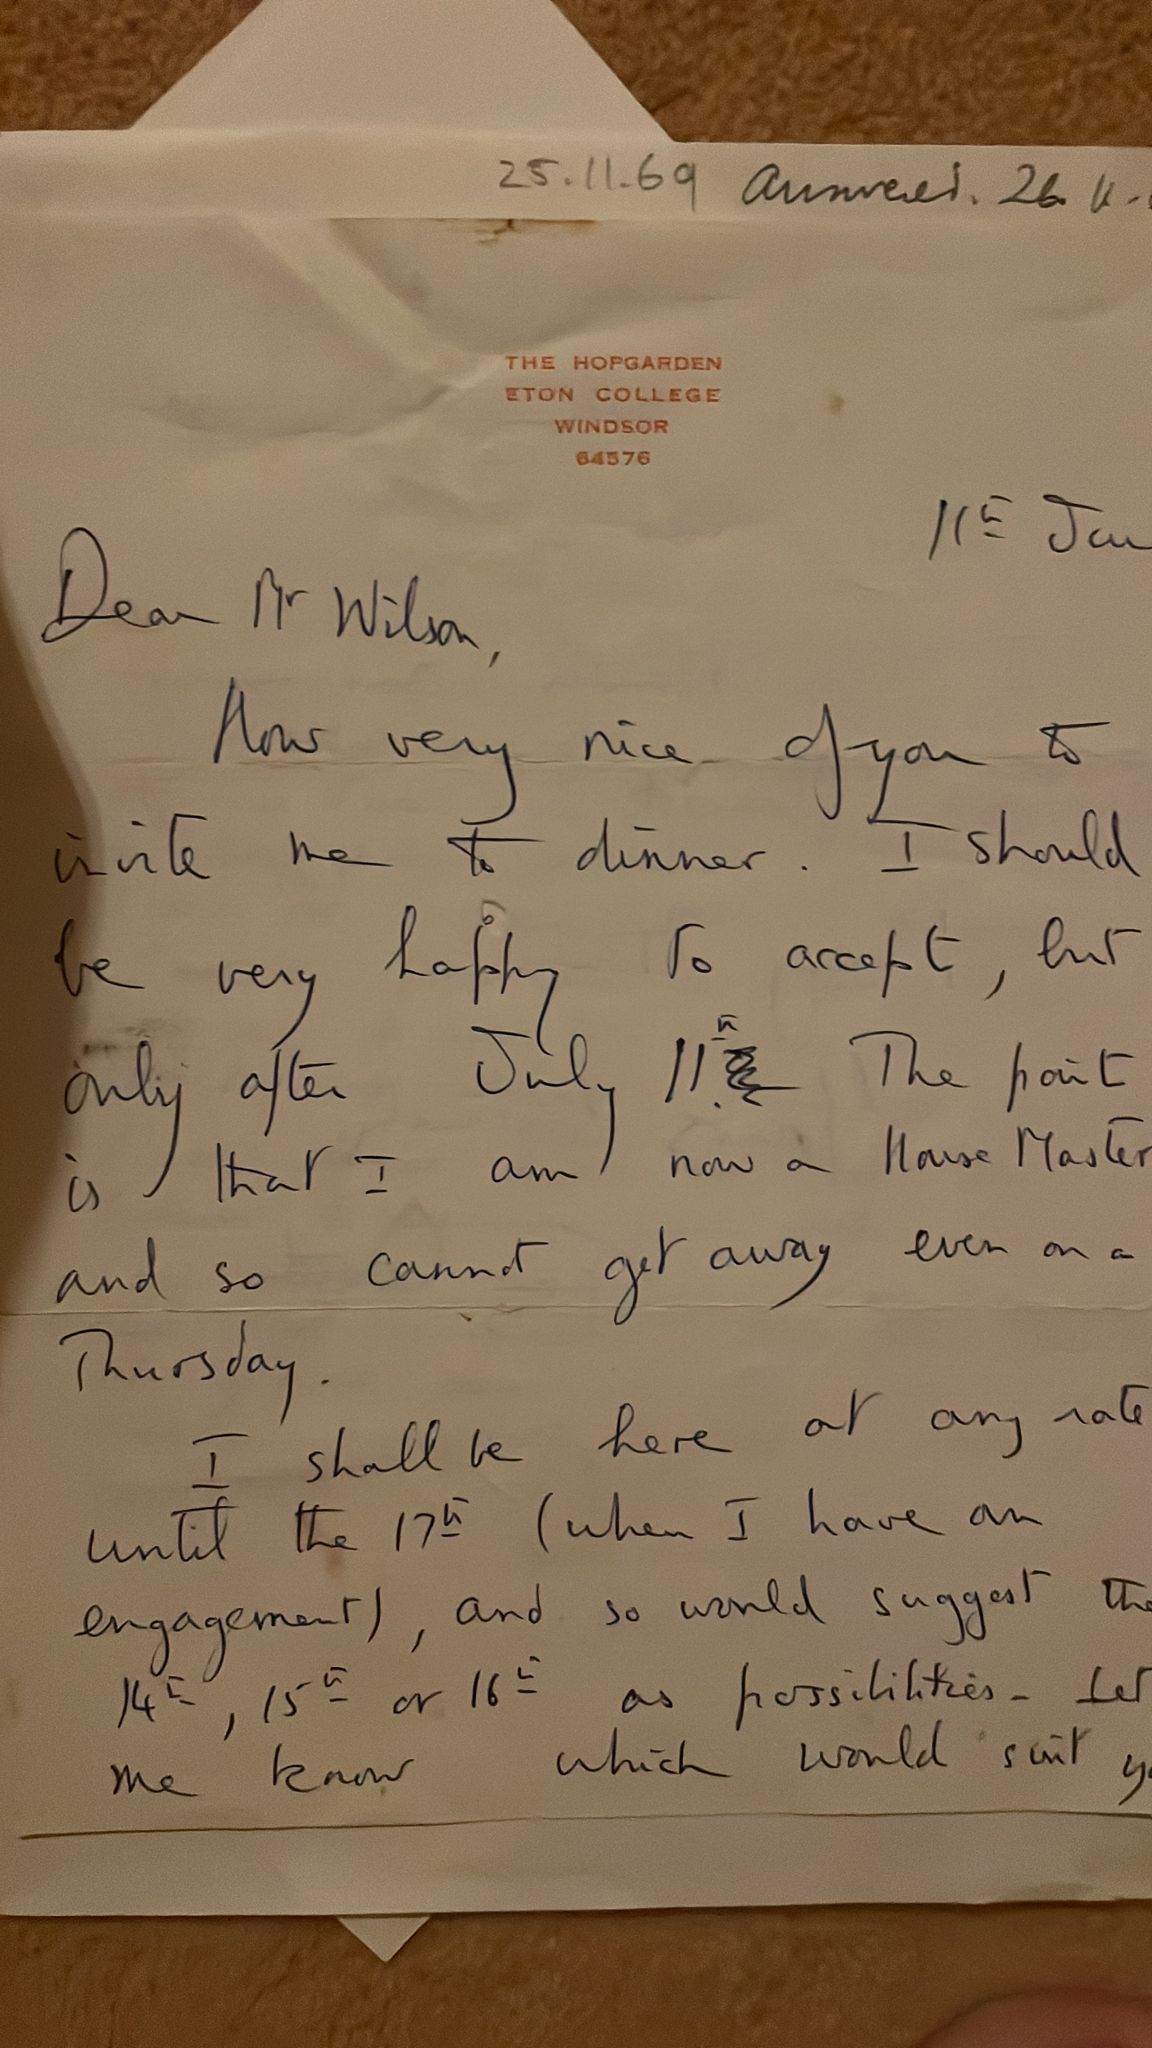 25.11.69 Answered. 26. 11.
THE HOPGARDEN
ETON COLLEGE
WINDSOR
64576
11th
Dear Mr Wilson,
How very nice of you to
invite me to dinner. I should
be very happy to accept, but
only after July 11th The point
is that I am now a House Master
and so cannot get away even on a
Thursday.
I shall be here at any rate
until the 17th (when I have an
engagement), and so would suggest the
14th, 15th or 16th as possibilities. Let
me know which would suit